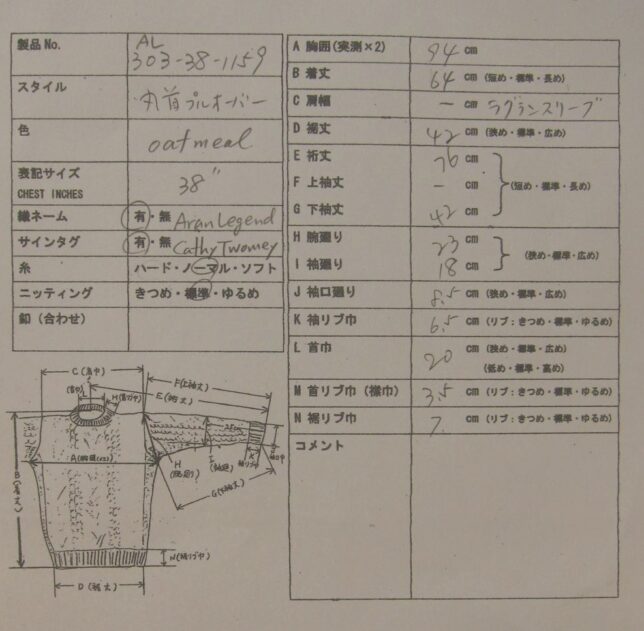 製品No. AL 303-38-1159
スタイル 丸首プルオーバー
色 oatmeal
表記サイズ CHEST INCHES 38"
織ネーム 有・無 Aran Legend
サインタグ 有・無 Cathy Twomey
糸 ハード・ノーマル・ソフト
ニッティング きつめ・標準・ゆるめ
釦(合わせ)
A 胸囲(実測×2) 94 cm
B 着丈 64 cm (短め・標準・長め)
C 肩幅 - cm ラグランスリーブ
D 裾丈 42 cm (狭め・標準・広め)
E 裄丈 76 cm
F 上袖丈 - cm (短め・標準・長め)
G 下袖丈 42 cm
H 腕廻り 23 cm
I 袖廻り 18 cm (狭め・標準・広め)
J 袖口廻り 8.5 cm (狭め・標準・広め)
K 袖リブ巾 6.5 cm (リブ:きつめ・標準・ゆるめ)
L 首巾 20 cm (狭め・標準・広め)
(低め・標準・高め)
M 首リブ巾(襟巾) 3.5 cm (リブ:きつめ・標準・ゆるめ)
N 裾リブ巾 7. cm (リブ:きつめ・標準・ゆるめ)
コメント
C(肩巾)
F(上袖丈)
E(裄丈)
L
A(胸囲×2)
B(着丈)
H
I
K
G(下袖丈)
N(裾リブ巾)
D(裾丈)